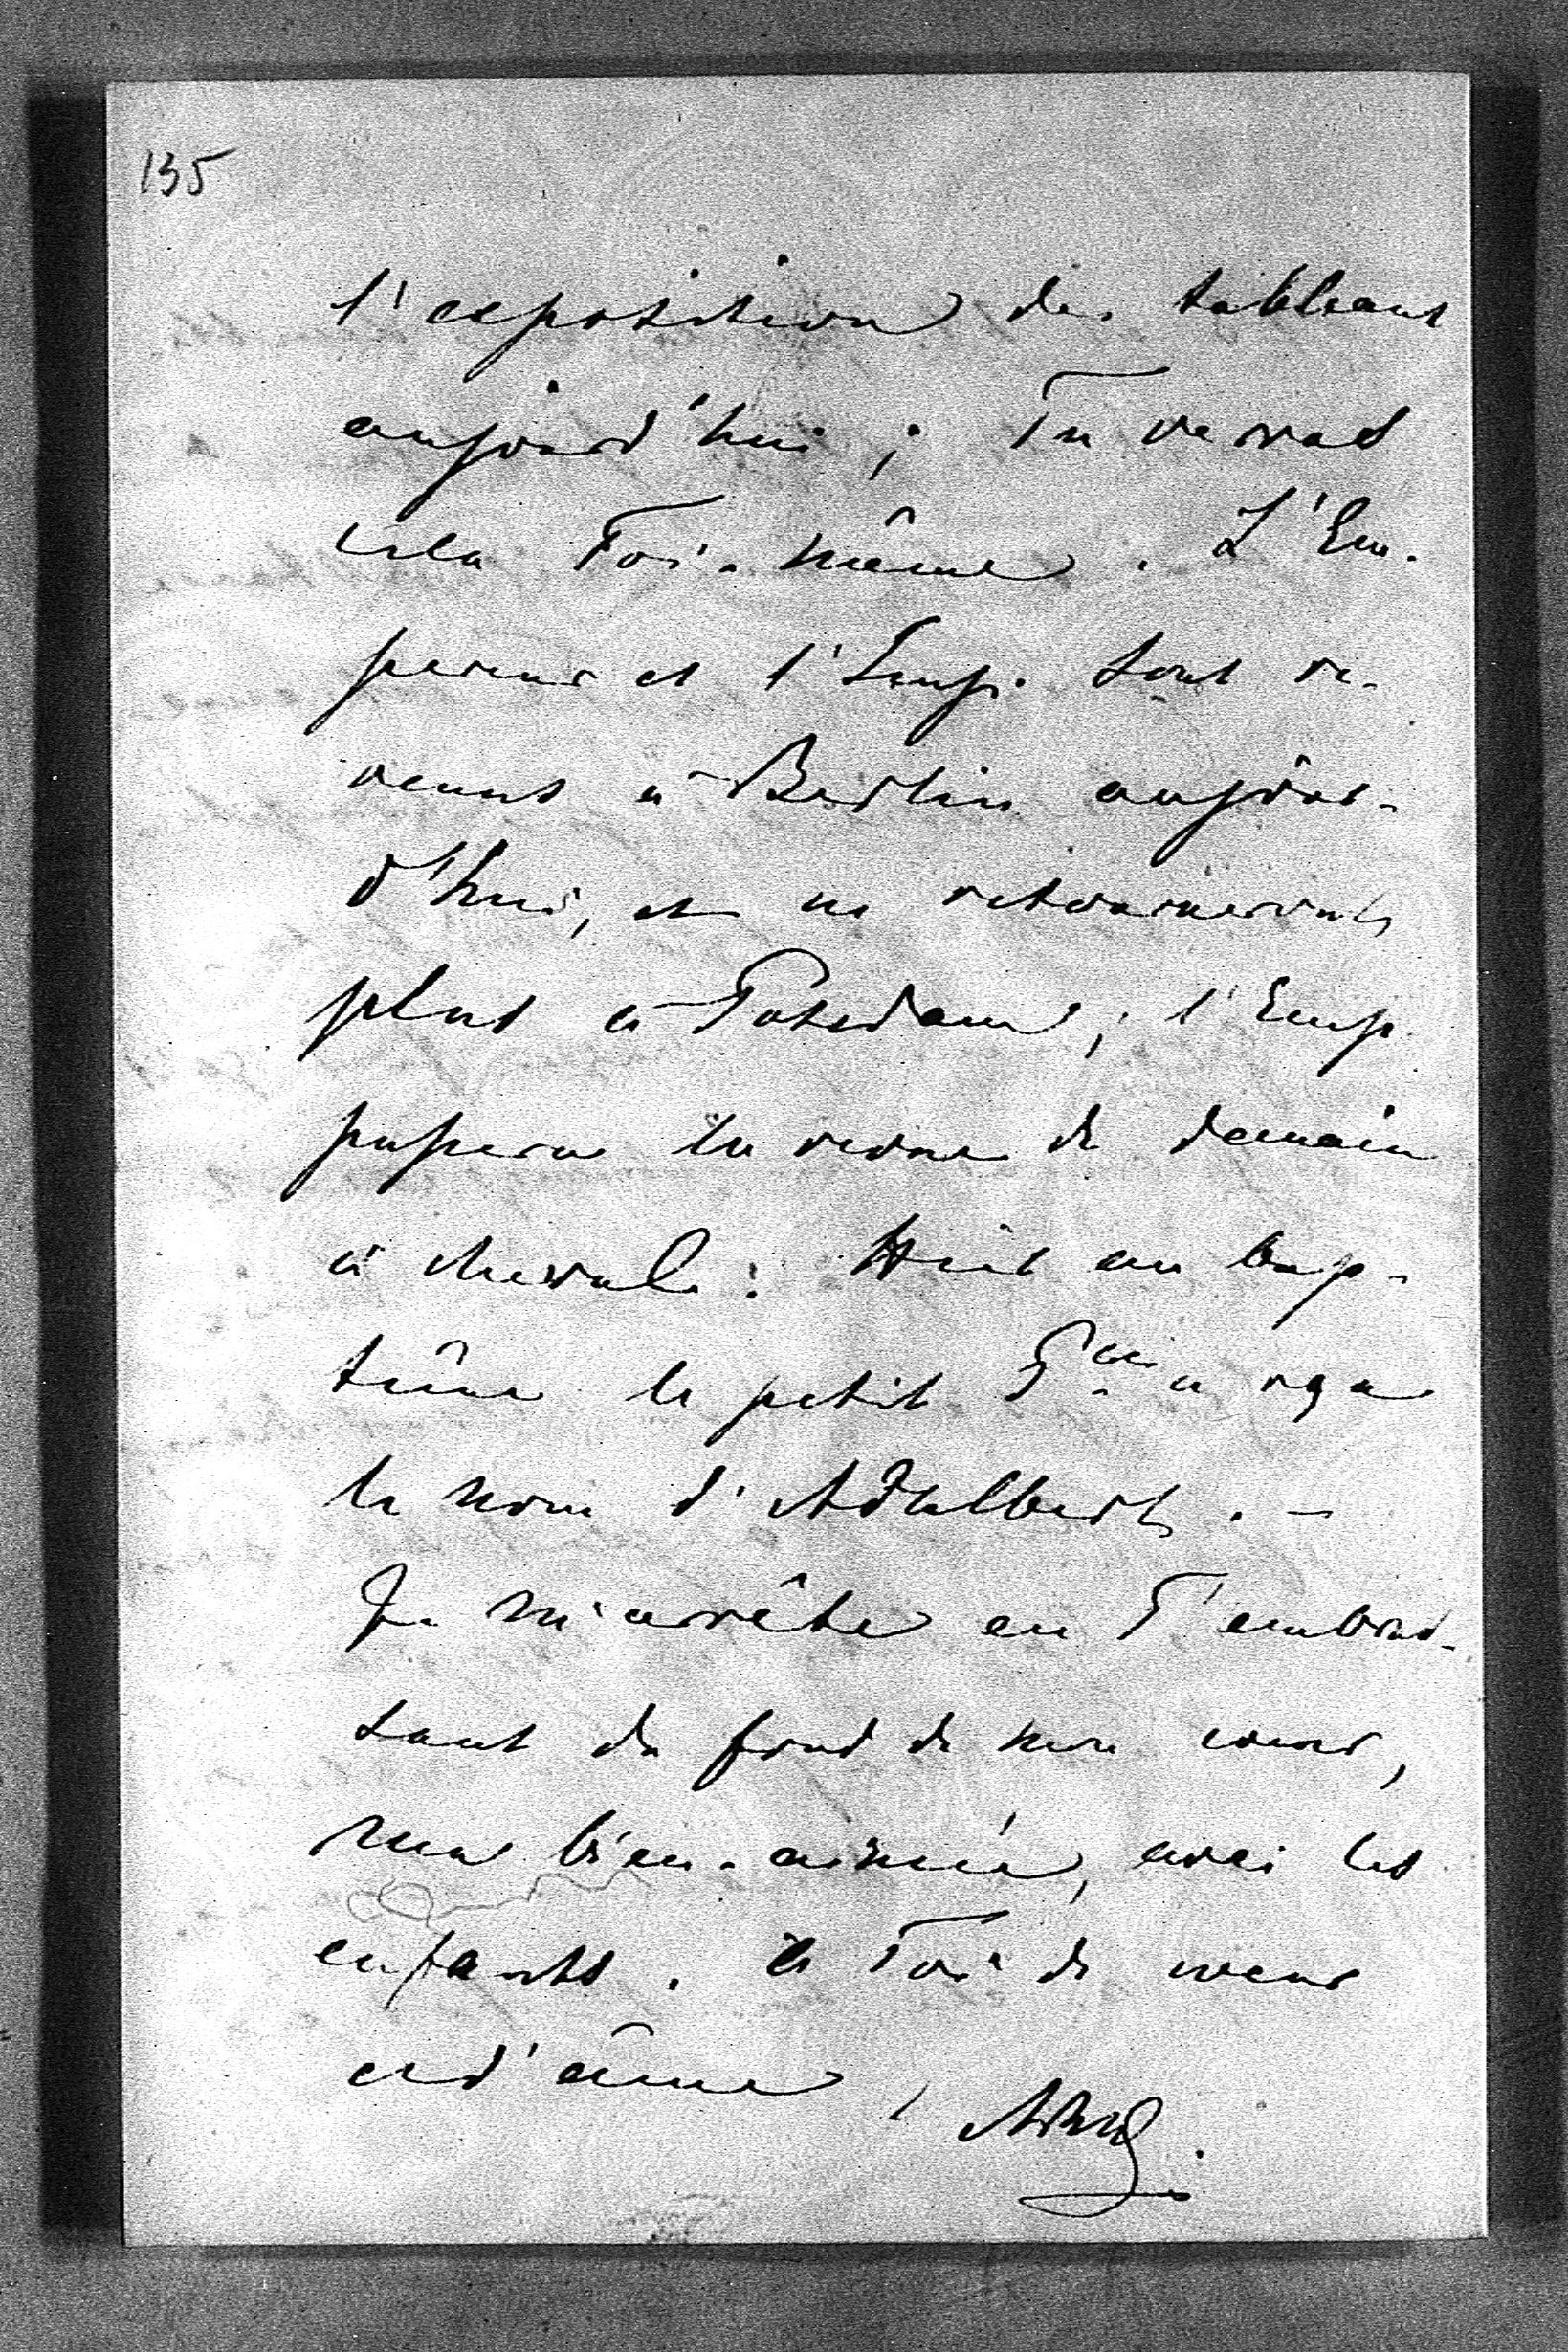 135
l'exposition des tableaux
aujourd'hui ; Tu verras
cela Toi-même. L'Em-
pereur et l'Imp. sont re-
venus à Berlin aujour-
d'hui, et ne retourneront
plus à Potsdam ; l'Emp.
passera la revue de demain
à cheval. Hier au bap-
tême le petit Pce a reçu
le nom d'Adalbert. –
Je m'arrête en T'embras-
sant du fond de mon cœur,
ma bien-aimée, avec les
enfants. à Toi de cœur
et d'âme,